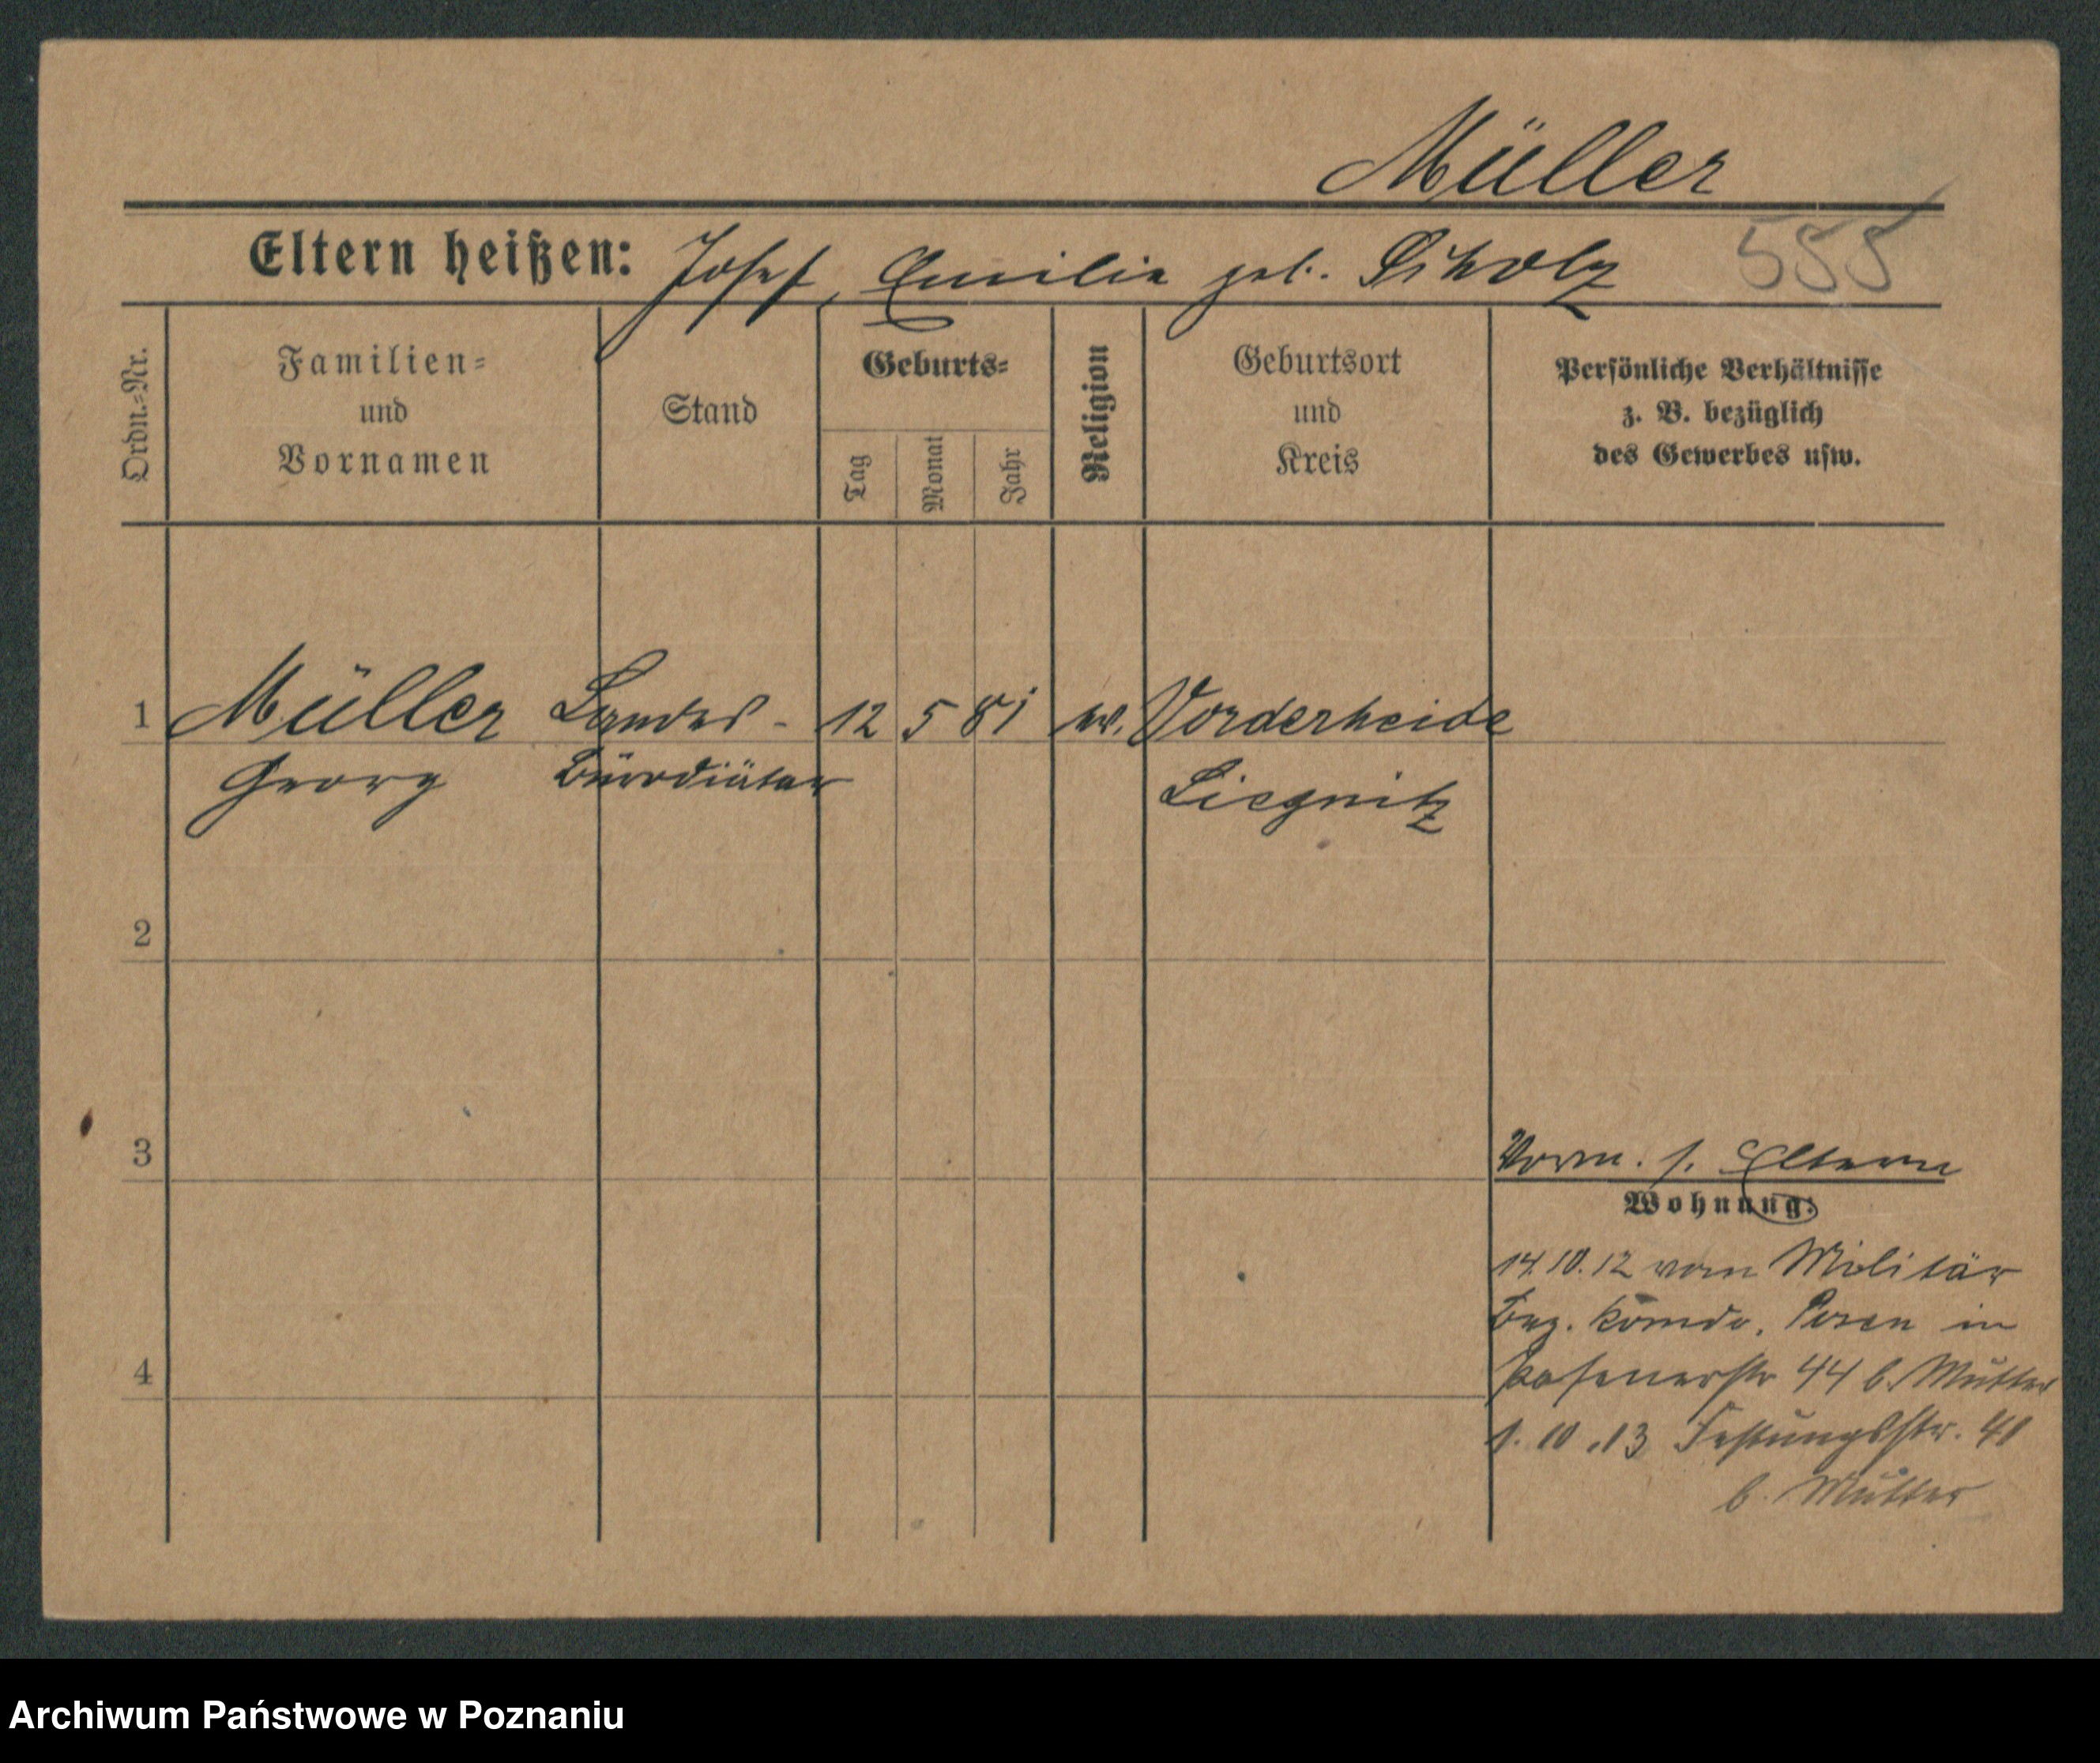 Müller
Eltern heißen: Josef, Emilie geb. Scholz 555
Ordn.-Nr.
Familien-
und
Vornamen
Stand
Geburts-
Tag
Monat
Jahr
Religion
Geburtsort
und
Kreis
Persönliche Verhältnisse
z. B. bezüglich
des Gewerbes usw.
1 Müller Landes- 12 5 81 Vorderheide
Georg Bürodiätar Liegnitz
2
3
Vorm. s. Eltern
Wohnung:
14.10.12 vom Militär
Bez. Komdo. Posen in
4
Posenerstr 44 b. Mutter
1.10.13 Festungsstr. 41
b. Mutter
Archiwum Państwowe w Poznaniu